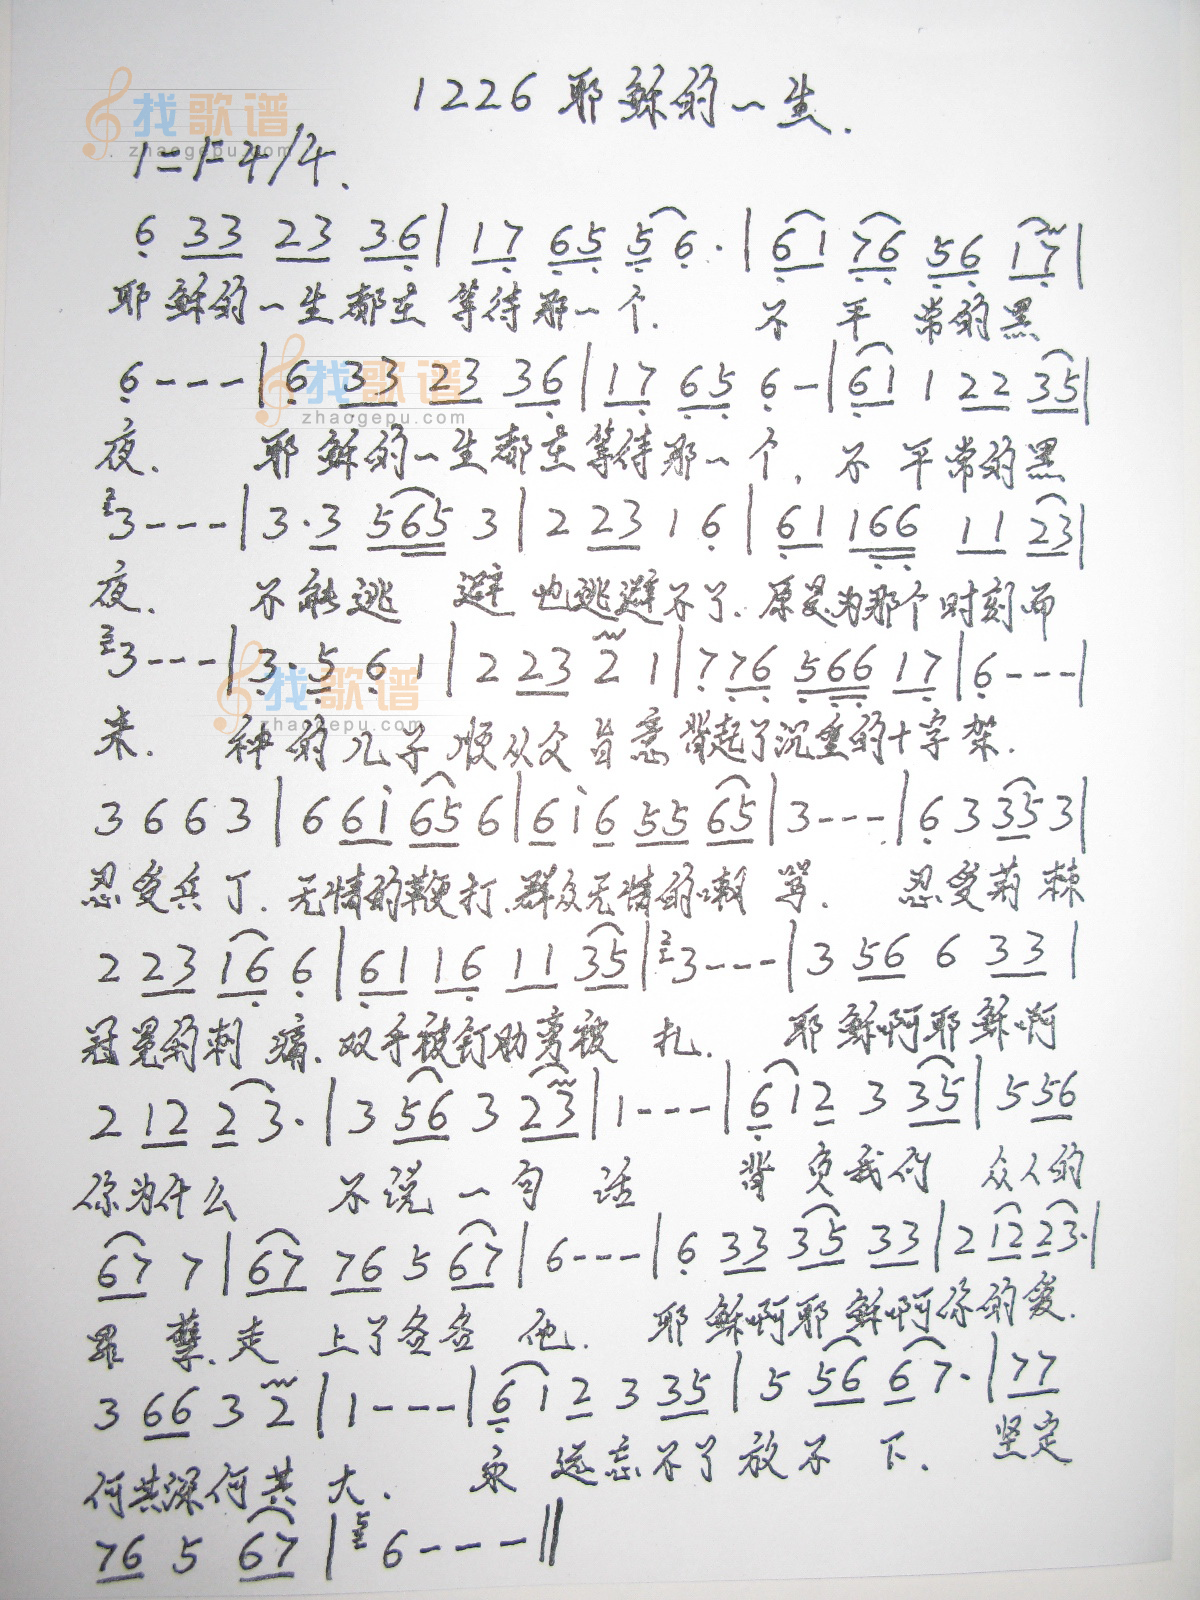 1226 耶稣的一生.
找歌谱
zhaogepu.com
1=F 4/4.
6 33 23 36 | 17 65 5 6· | 61 76 56 17 |
耶稣的一生都在等待那一个. 不平常的黑
6--- | 6 33 23 36 | 17 65 6- | 61 1 22 35 |
找歌谱
zhaogepu.com
夜. 耶稣的一生都在等待那一个, 不平常的黑
2 3--- | 3·3 565 3 | 2 23 1 6 | 61 166 11 23 |
夜. 不能逃避也逃避不了. 原是为那个时刻而
2 3--- | 3·5 6 1 | 2 23 2 1 | 7 76 566 17 | 6--- |
找歌谱
zhaogepu.com
来. 神的儿子顺从父旨意背起了沉重的十字架.
3 6 6 3 | 6 6i 65 6 | 6 i 6 55 65 | 3--- | 6 3 35 3 |
忍受兵丁. 无情的鞭打. 群众无情的嘲骂. 忍受荆棘
2 23 16 6 | 61 16 11 35 | 2 3--- | 3 56 6 33 |
冠冕的刺痛. 双手被钉肋旁被扎. 耶稣啊耶稣啊
2 12 2 3· | 3 56 3 23 | 1--- | 6 1 2 3 35 | 5 56
你为什么不说一句话 背负我们众人的
67 7 | 67 76 5 67 | 6--- | 6 33 35 33 | 2 12 23· |
罪孽. 走上了各各他. 耶稣啊耶稣啊你的爱.
3 66 3 2 | 1--- | 6 1 2 3 35 | 5 56 6 7· | 77
何其深何其大. 永远忘不了放不下. 坚定
76 5 67 | 5 6--- ||